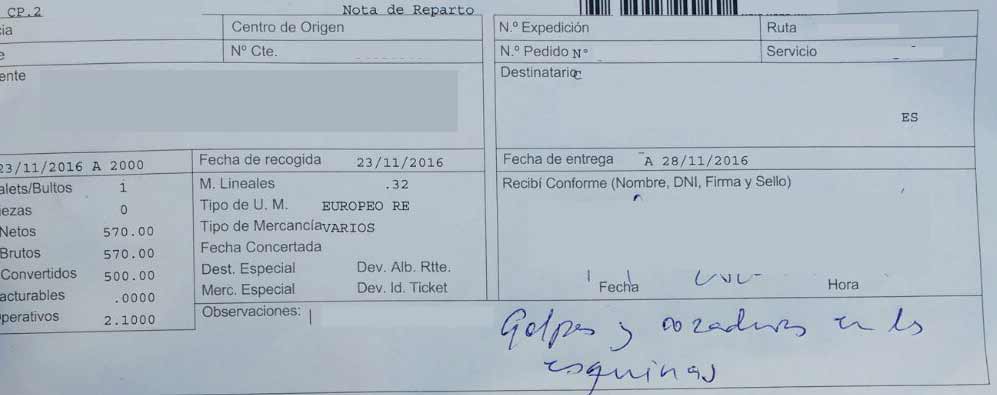 CP.2 Nota de Reparto
cia Centro de Origen N.º Expedición Ruta
e Nº Cte. N.º Pedido Nº Servicio
ente Destinatario
ES
23/11/2016 A 2000 Fecha de recogida 23/11/2016 Fecha de entrega A 28/11/2016
alets/Bultos 1 M. Lineales .32 Recibí Conforme (Nombre, DNI, Firma y Sello)
iezas 0 Tipo de U. M. EUROPEO RE
Netos 570.00 Tipo de Mercancía VARIOS
Brutos 570.00 Fecha Concertada
Convertidos 500.00 Dest. Especial Dev. Alb. Rtte.
acturables .0000 Merc. Especial Dev. Id. Ticket Fecha Hora
perativos 2.1000 Observaciones:
Golpes y rozaduras en las
esquinas